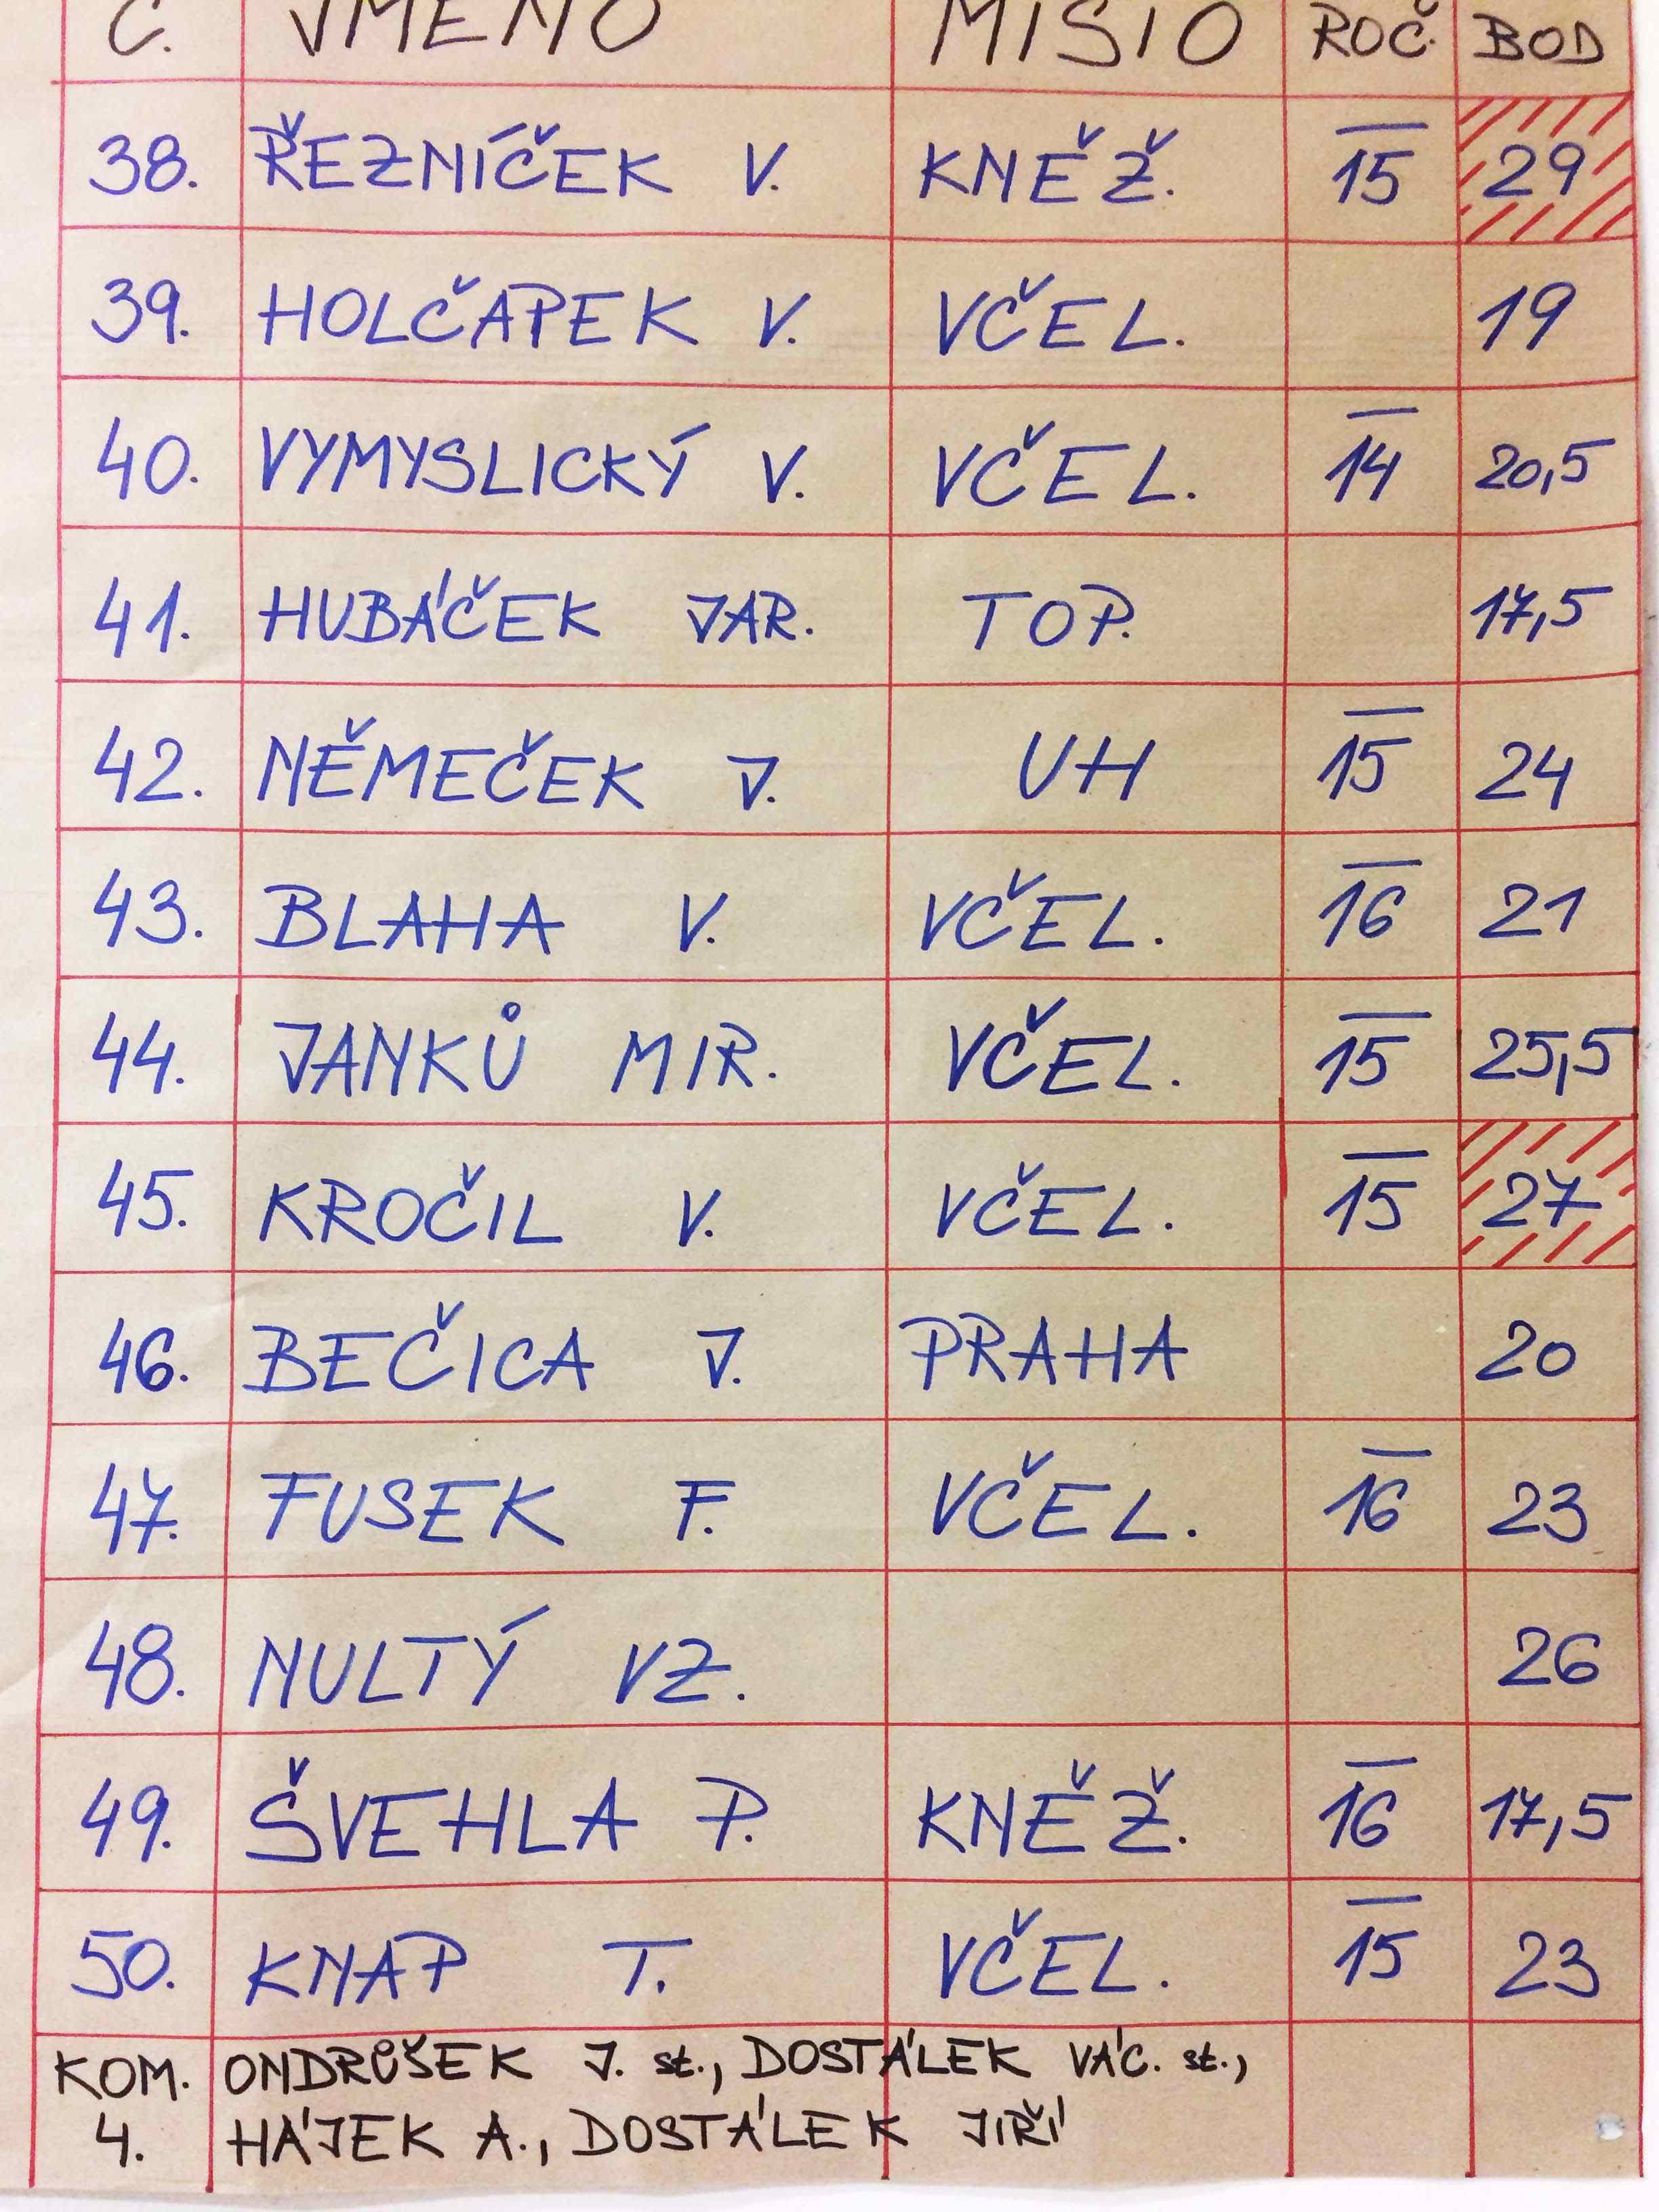 Č. JMÉNO MÍSTO ROČ. BOD
38. ŘEZNÍČEK V. KNĚŽ. 15 29
39. HOLČAPEK V. VČEL. 19
40. VYMYSLICKÝ V. VČEL. 14 20,5
41. HUBÁČEK JAR. TOP. 17,5
42. NĚMEČEK J. UH 15 24
43. BLAHA V. VČEL. 16 21
44. JANKŮ MIR. VČEL. 15 25,5
45. KROČIL V. VČEL. 15 27
46. BEČICA J. PRAHA 20
47. FUSEK F. VČEL. 16 23
48. NULTÝ VZ. 26
49. ŠVEHLA P. KNĚŽ. 16 17,5
50. KNAP T. VČEL. 15 23
KOM. ONDRŮŠEK J. st., DOSTÁLEK VÁC. st.,
4. HÁJEK A., DOSTÁLEK JIŘÍ